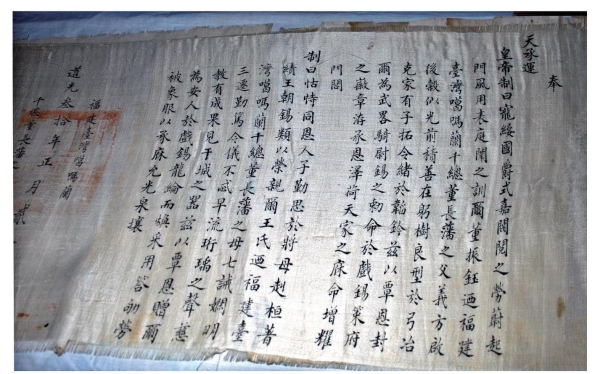 奉
天承運
皇帝制曰寵綏國爵式嘉閥閱之勞蔚起
門風用表庭闈之訓爾董振鈺迺福建
臺灣噶瑪蘭千總董長藩之父義方啟
後穀似光前積善在躬樹良型於弓冶
克家有子拓令緒於韜鈐茲以覃恩封
爾為武畧騎尉錫之勅命於戲錫策府
之徽章洊承恩澤荷天家之庥命增耀
門閭
制曰怙恃同恩人子勤思於將母赳桓著
績王朝錫類以榮親爾王氏迺福建臺
灣噶瑪蘭千總董長藩之母七誡嫻明
三遷勤篤令儀不忒早流珩瑀之聲慈
教有成果見干城之器茲以覃恩贈爾
為安人於戲錫龍綸而煥采用答劬勞
被象服以承庥允光泉壤
道光叁拾年正月貳
福建臺灣噶瑪蘭
千總董長藩之